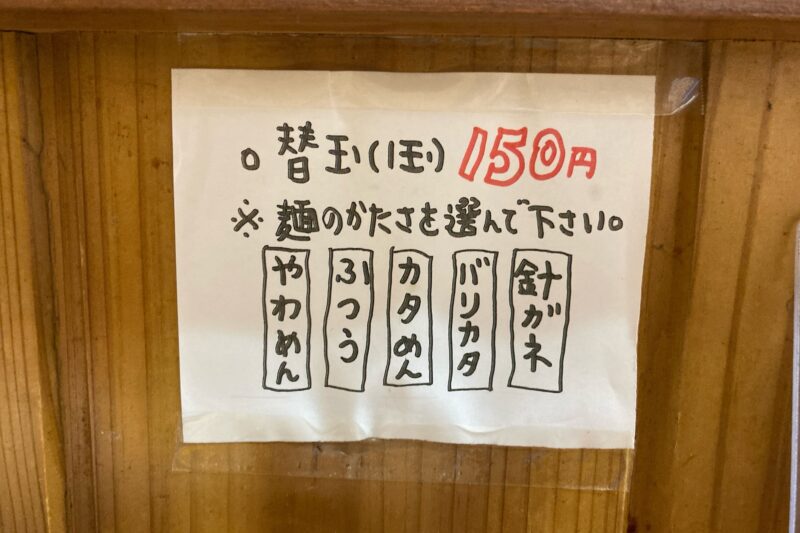 ○替玉(1玉)150円
※麺のかたさを選んで下さい。
針ガネ
バリカタ
カタめん
ふつう
やわめん